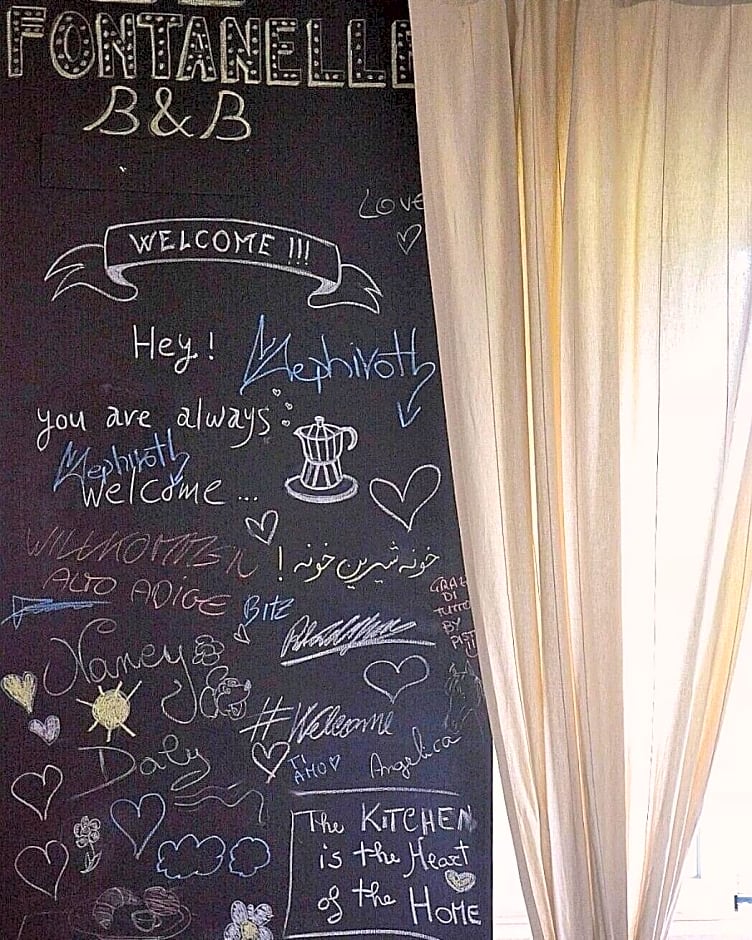 FONTANELLE
B&B
LOVE
WELCOME !!!
Hey!
Nephiroth
you are always
Nephiroth
welcome ...
WILLKOMMEN
خونه شیرین خونه !
ALTO ADIGE
BITZ
GRAZ
DI
TUTTO
BY
Nancy
#Welcome
TI
AMO
Angelica
Daly
The KITCHEN
is the Heart
of the HOME